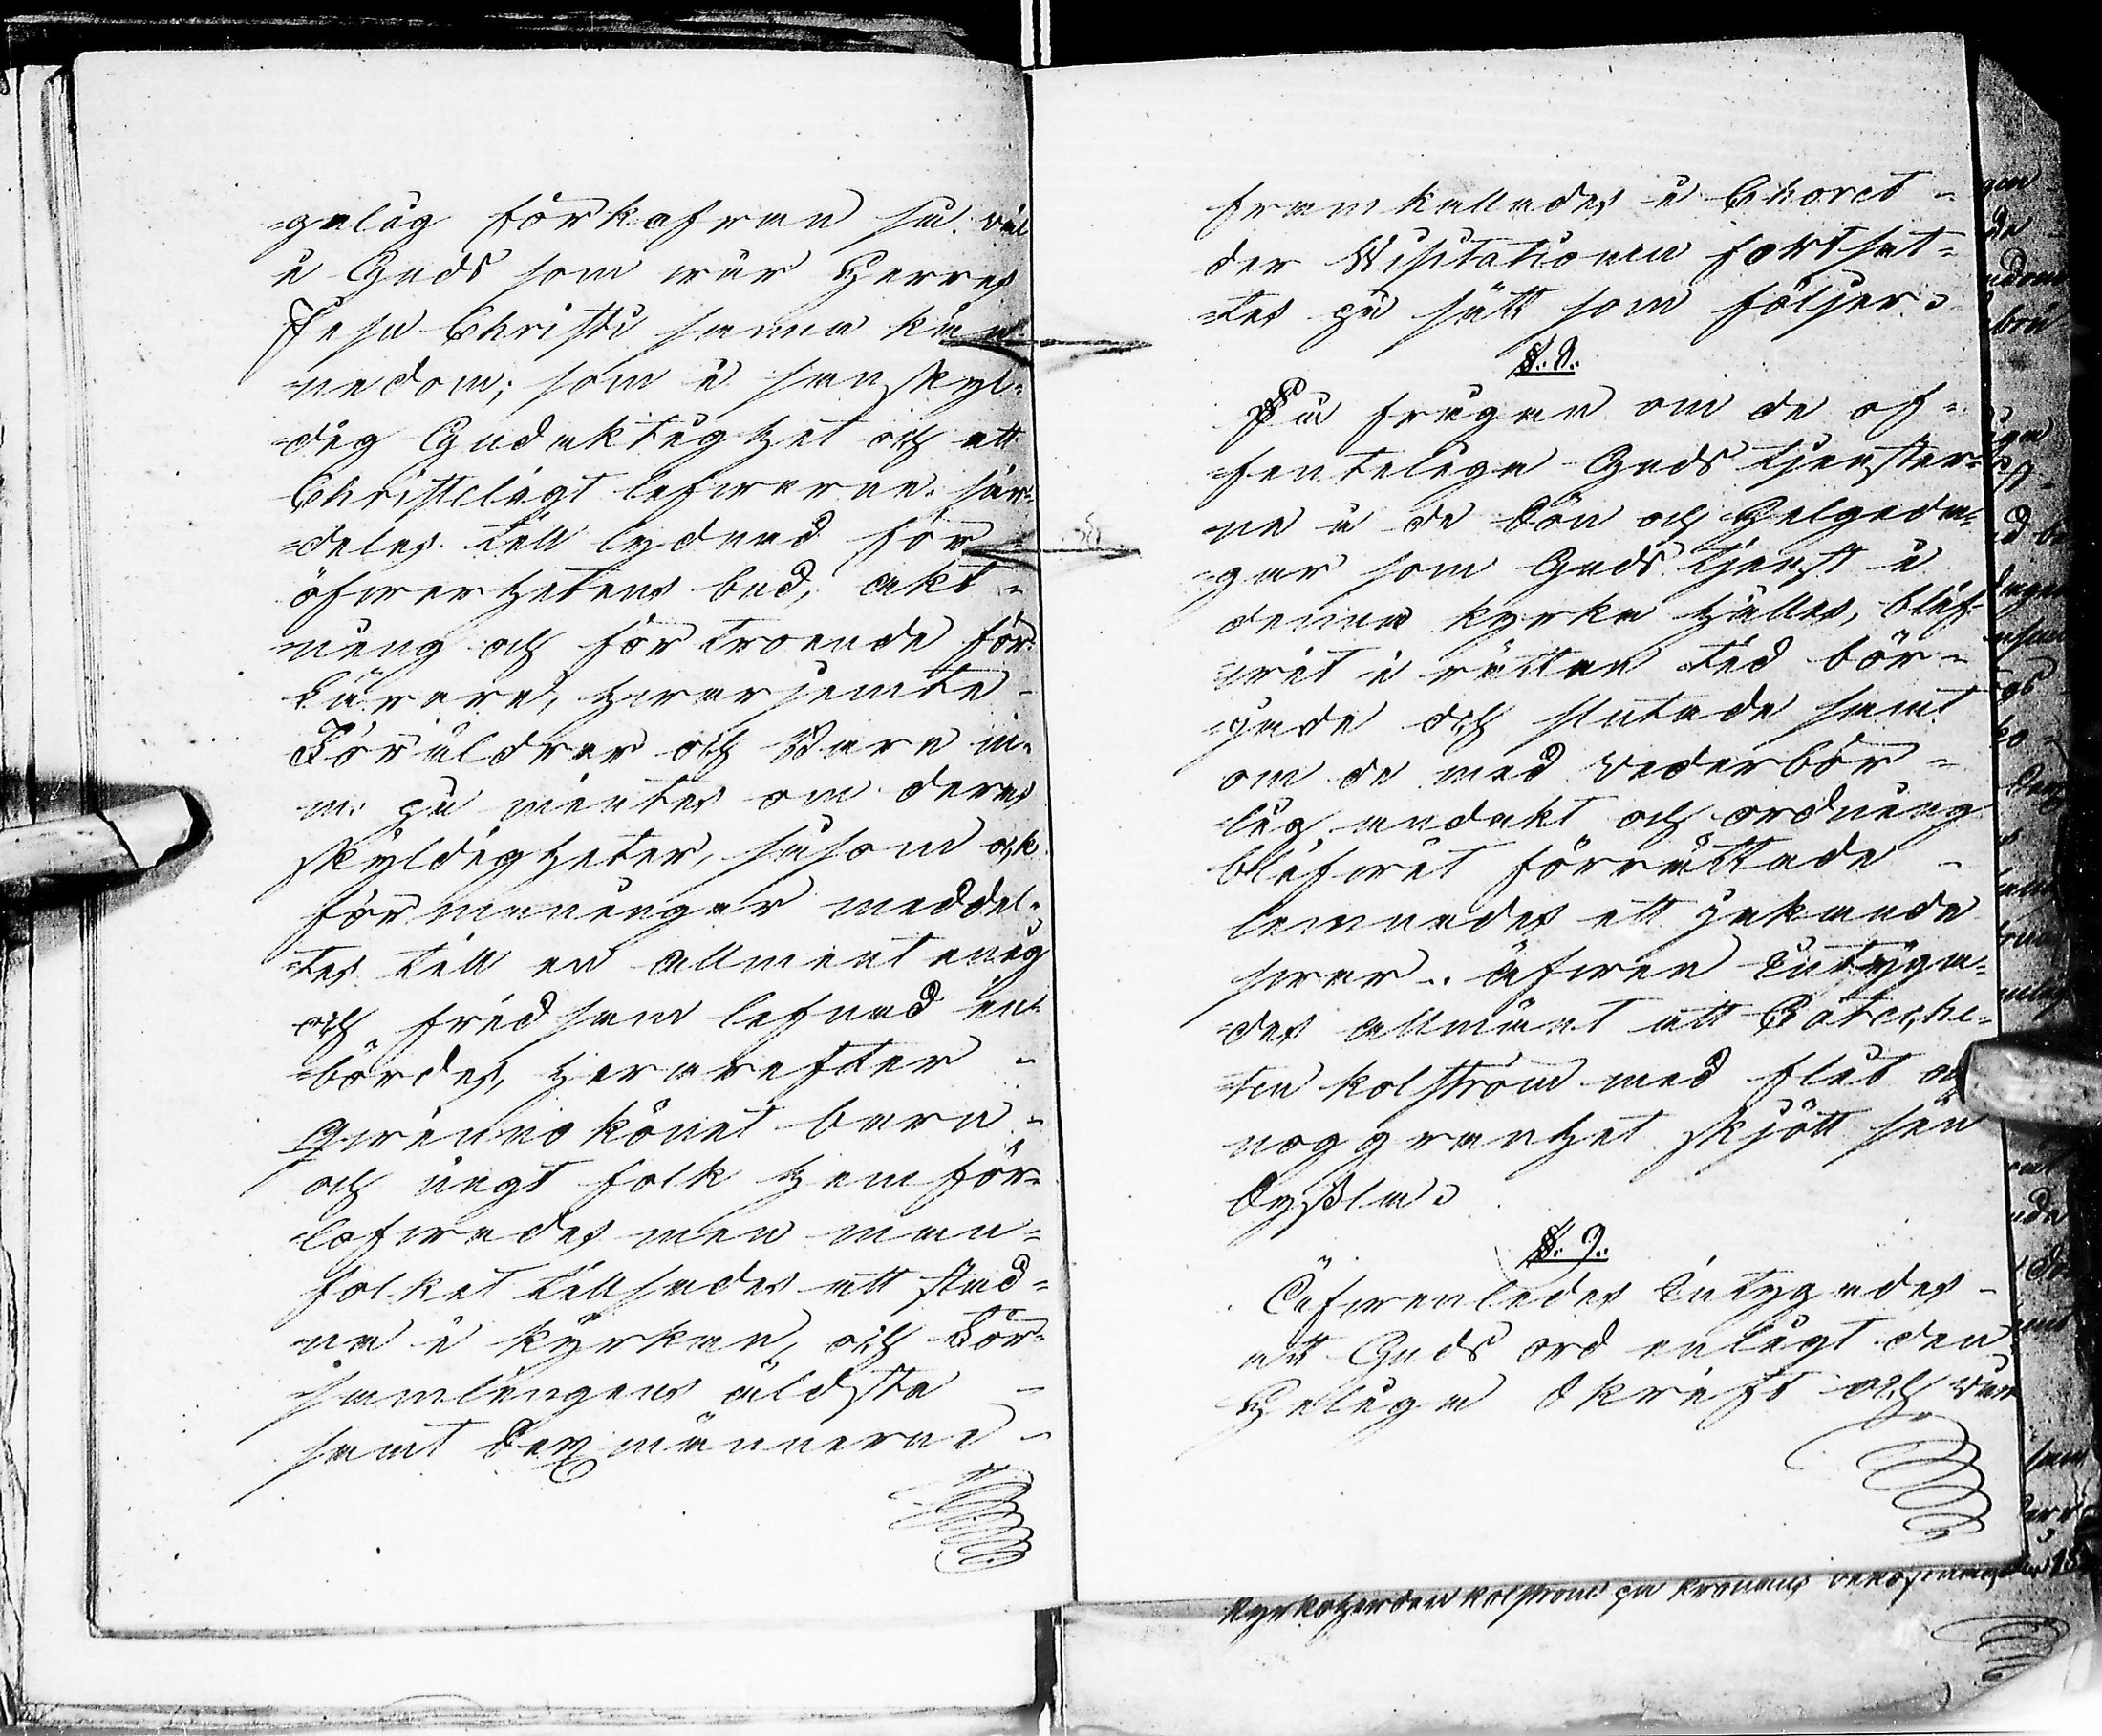 =gelig förkofran så väl
i Guds som wår Herres
Jesu Christi sanna kän
=nedom; som i sanskyl=
=dig Gudaktighet och ett
Christeligt lefwerne. sär=
=deles till lydnad för
öfwerhetens bud, akt=
=ning och förtroende för
Lärare, hwarjemte
Föräldrar och Barn in=
m: på mintes om deras
skyldigheter, såsom ock
förmaningar meddel=
=tes till en allment enig
och fridsam lefnad in=
=bördes, hwarefter
Qwinnokönet barn
och ungt folk hemför=
=lofwades men man=
folket tillsades att stad=
=na i kyrkan, och För=
samlingens äldste
samt Sexmännerne
framkallades i Choret
der Visitationen fortsat=
=tes på sätt som följer.
§. 8.
På frågan om de of=
=fenteliga Gudstjenster=
ne å de Sön och Helgeda=
=gar som Gudstjenst i
denna kyrka hålles, blif=
=wit i rättan tid bör=
=jade och slutade samt
om de med wederbör=
=lig andakt och ordning
blifwit förrättade
lemnades ett jakande
swar. äfwen intyga=
des allmänt att Cateche=
=ten Kolström med flit och
noggranhet skjött sin
Syßla.
§. 9.
Äfwenledes intygades
att Guds ord enligt den
Heliga Skrift och wår
Kyrkoherden Kolström på Kronans